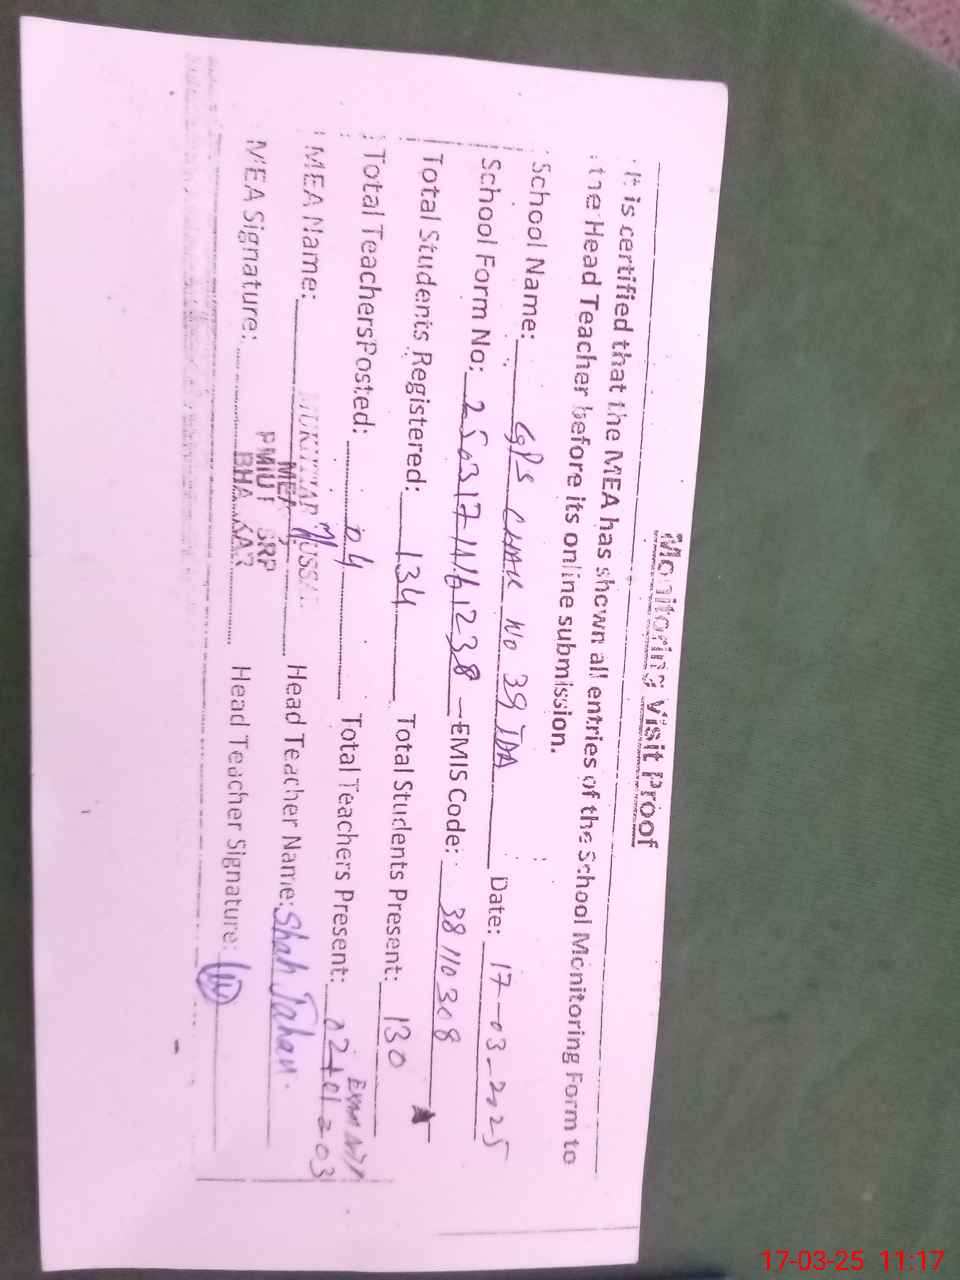 Monitoring Visit Proof
It is certified that the MEA has shown all entries of the School Monitoring Form to
the Head Teacher before its online submission.
School Name: GPS CHAK No 39 TDA Date: 17-03-2025
School Form No: EMIS Code: 38110308
Total Students Registered: 134 Total Students Present: 130
Total TeachersPosted: 04 Total Teachers Present: 02+01=03
MEA Name: Head Teacher Name: Shah Jahan.
MEA
SRP
MEA Signature: Head Teacher Signature:
17-03-25 11:17